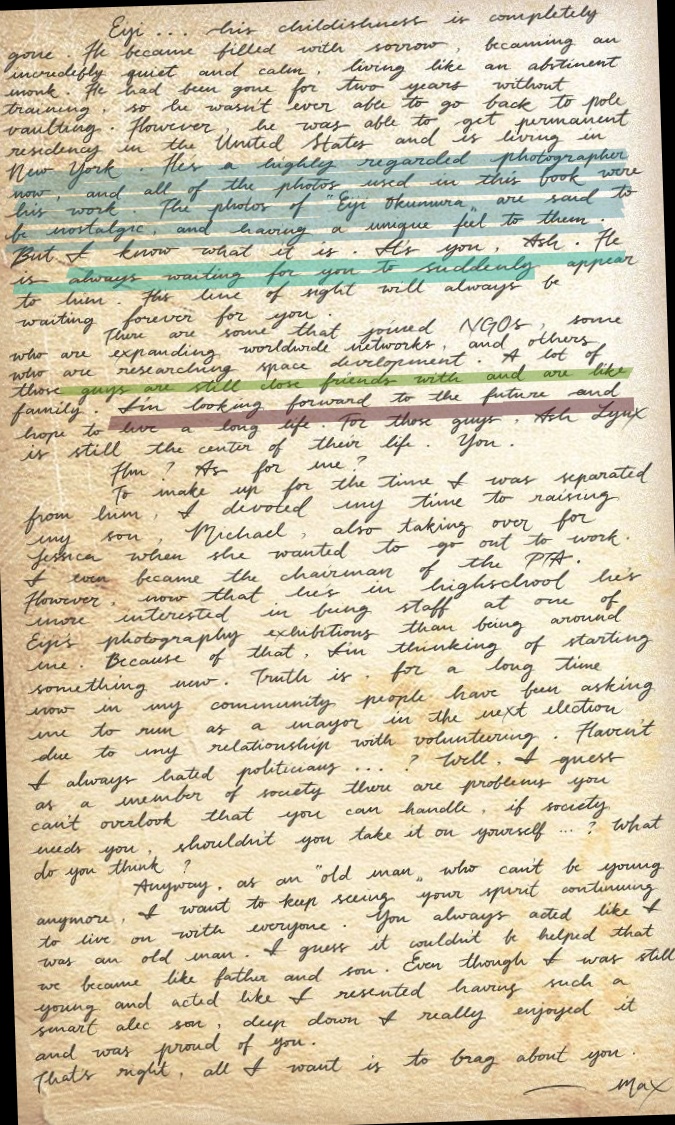 Eiji ... his childishness is completely
gone. He became filled with sorrow, becoming an
incredibly quiet and calm, living like an abstinent
monk. He had been gone for two years without
training, so he wasn't ever able to go back to pole
vaulting. However, he was able to get permanent
residency in the United States and is living in
New York. He's a highly regarded photographer
now, and all of the photos used in this book were
his work. The photos of "Eiji Okumura" are said to
be nostalgic, and having a unique feel to them.
But I know what it is. It's you, Ash. He
is always waiting for you to suddenly appear
to him. His line of sight will always be
waiting forever for you.
There are some that joined NGOs, some
who are expanding worldwide networks, and others
who are researching space development. A lot of
those guys are still close friends with and are like
family. I'm looking forward to the future and
hope to live a long life. For those guys, Ash Lynx
is still the center of their life. You.
Hm? As for me?
To make up for the time I was separated
from him, I devoted my time to raising
my son, Michael, also taking over for
Jessica when she wanted to go out to work.
I even became the chairman of the PTA.
However, now that he's in highschool he's
more interested in being staff at one of
Eiji's photography exhibitions than being around
me. Because of that, I'm thinking of starting
something new. Truth is, for a long time
now in my community people have been asking
me to run as a mayor in the next election
due to my relationship with volunteering. Haven't
I always hated politicians ... ? Well, I guess
as a member of society there are problems you
can't overlook that you can handle, if society
needs you, shouldn't you take it on yourself ... ? What
do you think?
Anyway, as an "old man" who can't be young
anymore, I want to keep seeing your spirit continuing
to live on with everyone. You always acted like I
was an old man. I guess it couldn't be helped that
we became like father and son. Even though I was still
young and acted like I resented having such a
smart alec son, deep down I really enjoyed it
and was proud of you.
That's right, all I want is to brag about you.
— Max